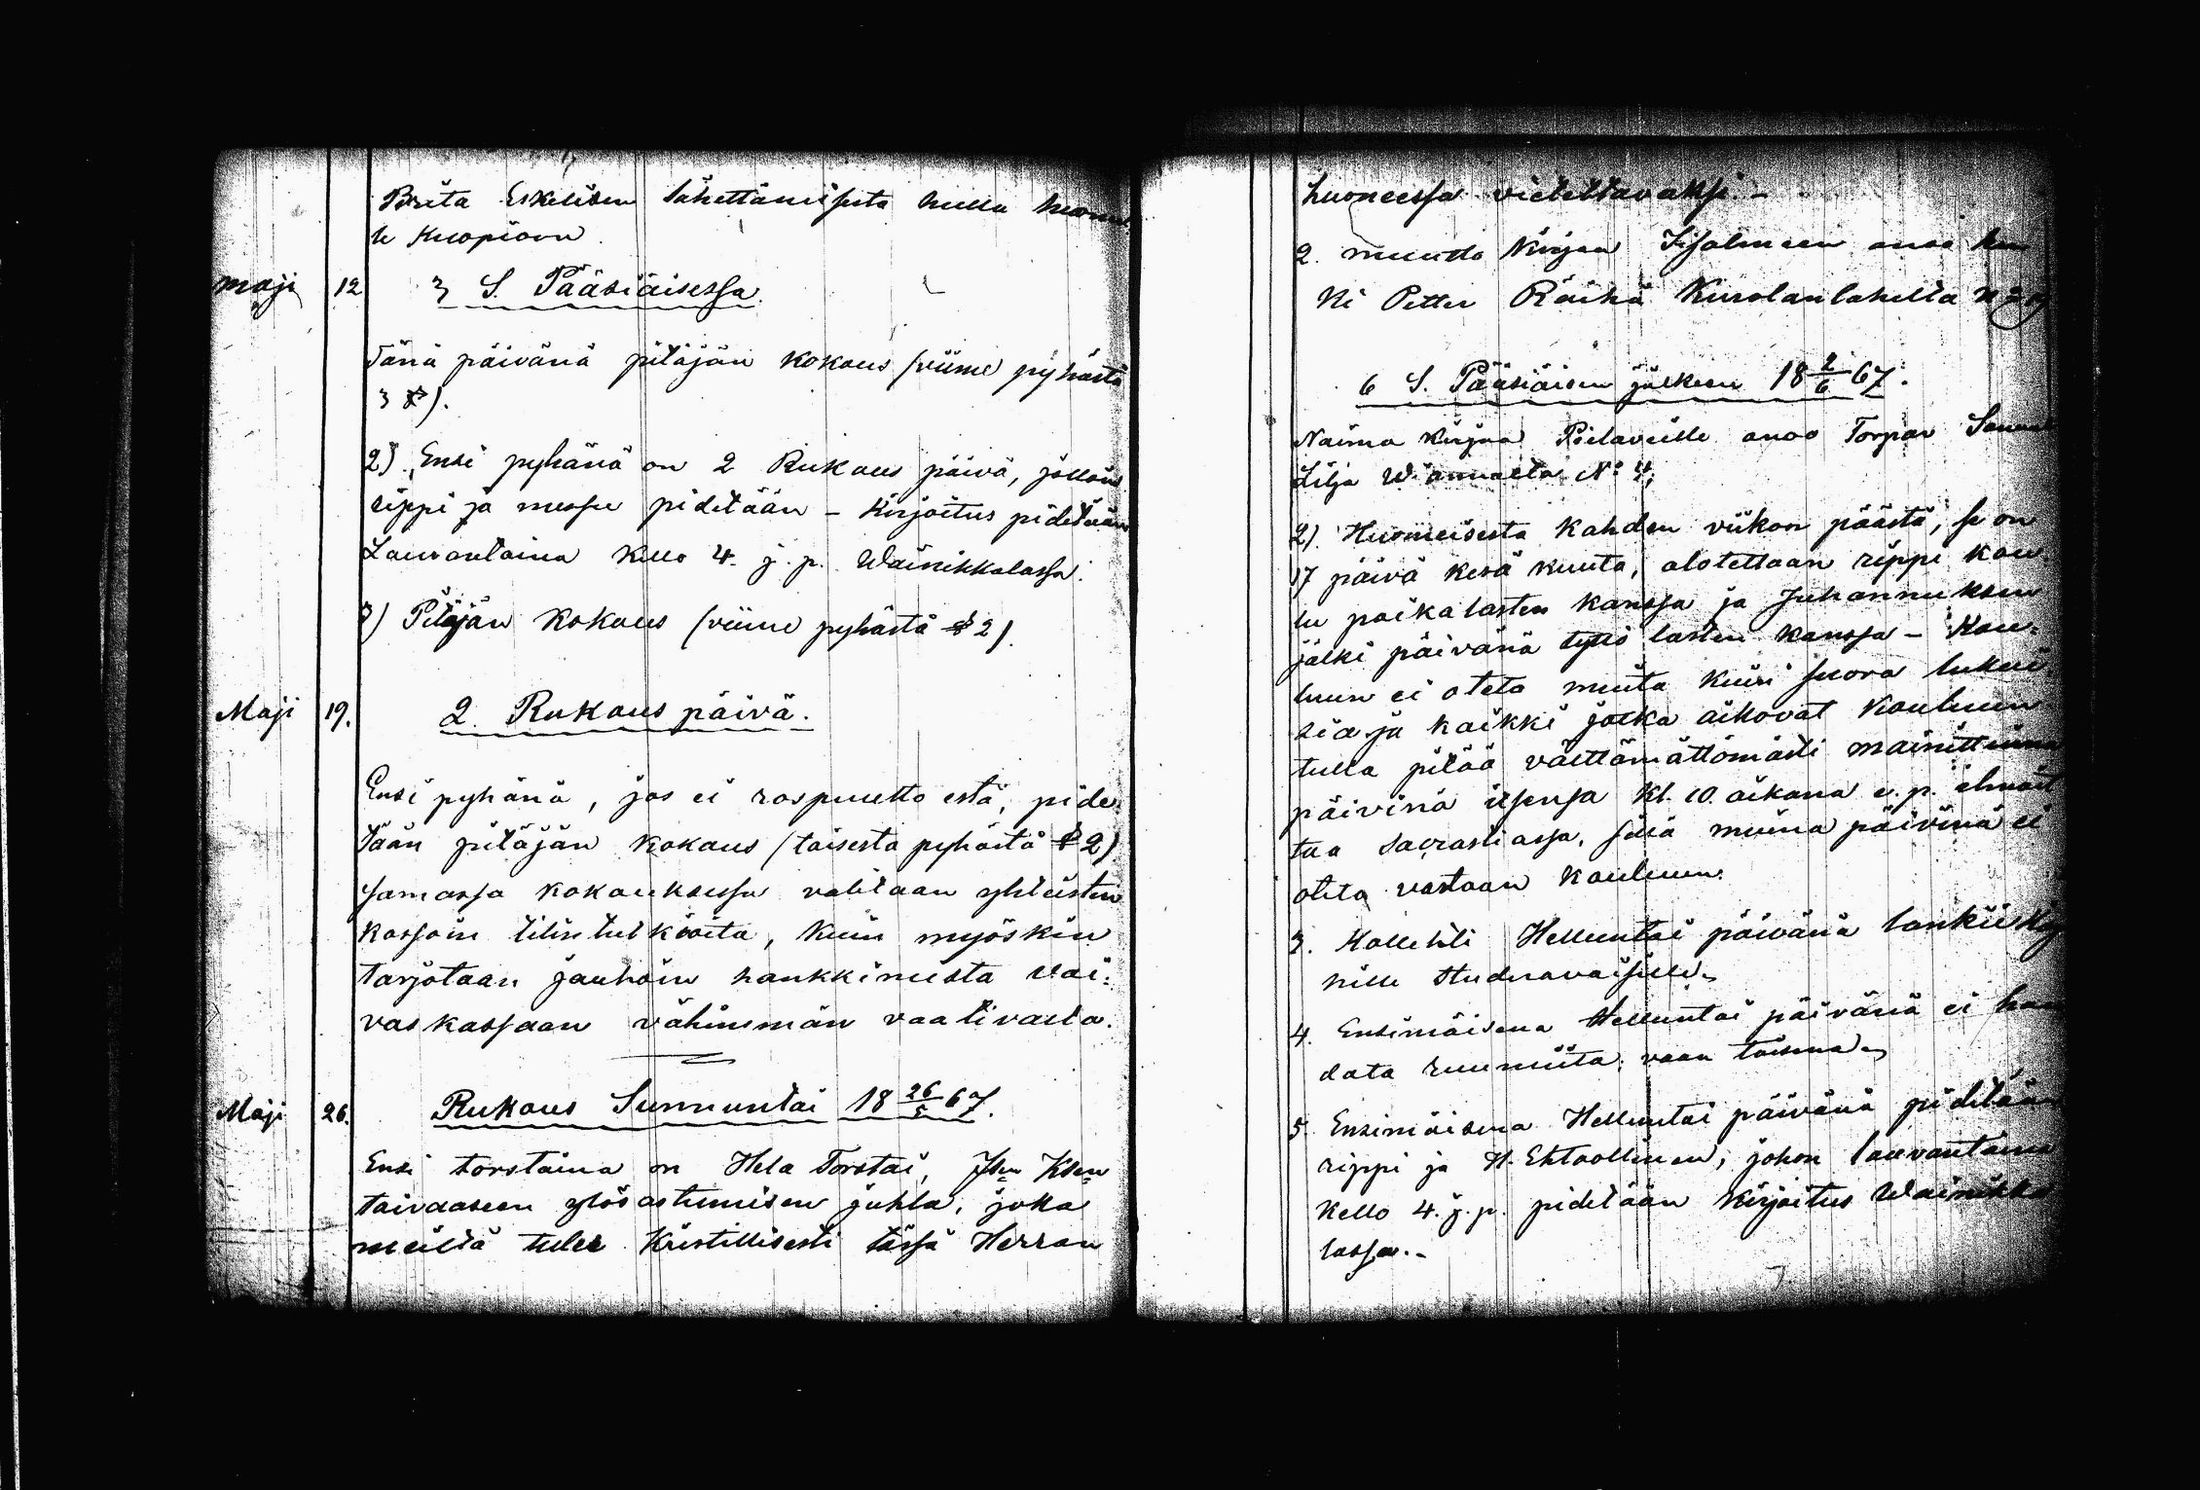 Brita Eskelisen lähettämisestä hullu huonee
le Kuopioon
Maji 12 3 S. Pääsiäisessa.
Tänä päivänä pitäjän kokous (viime pyhästä
3 §).
2) Ensi pyhänä on 2 Rukous päivä, jolloin
rippi ja messu pidetään – Kirjoitus pidetään
Lauvantaina Kello 4. j. p. Wäinikkalassa.
3) Pitäjän Kokous (viime pyhästä § 2).
Maji 19. 2. Rukous päivä.
Ensi pyhänä, jos ei rospuutto estä, pide
tään pitäjän kokous (toisesta pyhästä § 2)
samassa kokouksessa valitaan yhteisten
kassoin tilintutkioita, kuin myöskin
tarjotaan jauhoin hankkimista vai:
vaskassaan vähimmän vaativalla.
Maji 26. Rukous Sunnuntai 18 26/5 67.
Ensi torstaina on Hela Torstai, Jsen Ksen
taivaaseen ylösastumisen juhla, joka
meiltä tulee Kristillisesti tässä Herran
huoneessa vietettäväksi. –
2. muutto Kirjaa Iisalmeen anoo
Petter Räihä Kurolanlahella N:o
6 S. Pääsiäisen jälkeen 18 2/6 67.
Naima kirjaa Pielaveille anoo Torpar
Lilja W N:o 4,
2). Huomeisesta kahden viikon päästä, se on
17 päivä kesä kuuta, alotettaan rippi kou
lu poikalasten kanssa ja Juhannuksen
jälki päivänä tyttö lasten kanssa – Kou:
luun ei oteta muita kuin suora lukui
sia ja kaikki jotka aikovat Kouluun
tulla pitää välttämättömästi mainittuina
päivinä itsensä kl. 10. aikana e. p. ilmoit
taa sacrastiassa, sillä muina päivinä ei
oteta vastaan kouluun.
3. Kollehti Helluntai päivänä lankii Ky
nille Huonavaisille. –
4. Ensimäisenä Helluntai päivänä ei hau
data ruumiita, vaan toisena. –
5. Ensimäisenä Helluntai päivänä pidetään
rippi ja H. Ehtoollinen, johon lauvantaina
kello 4. j. p. pidetään kirjoitus Wäinikka
lassa. –